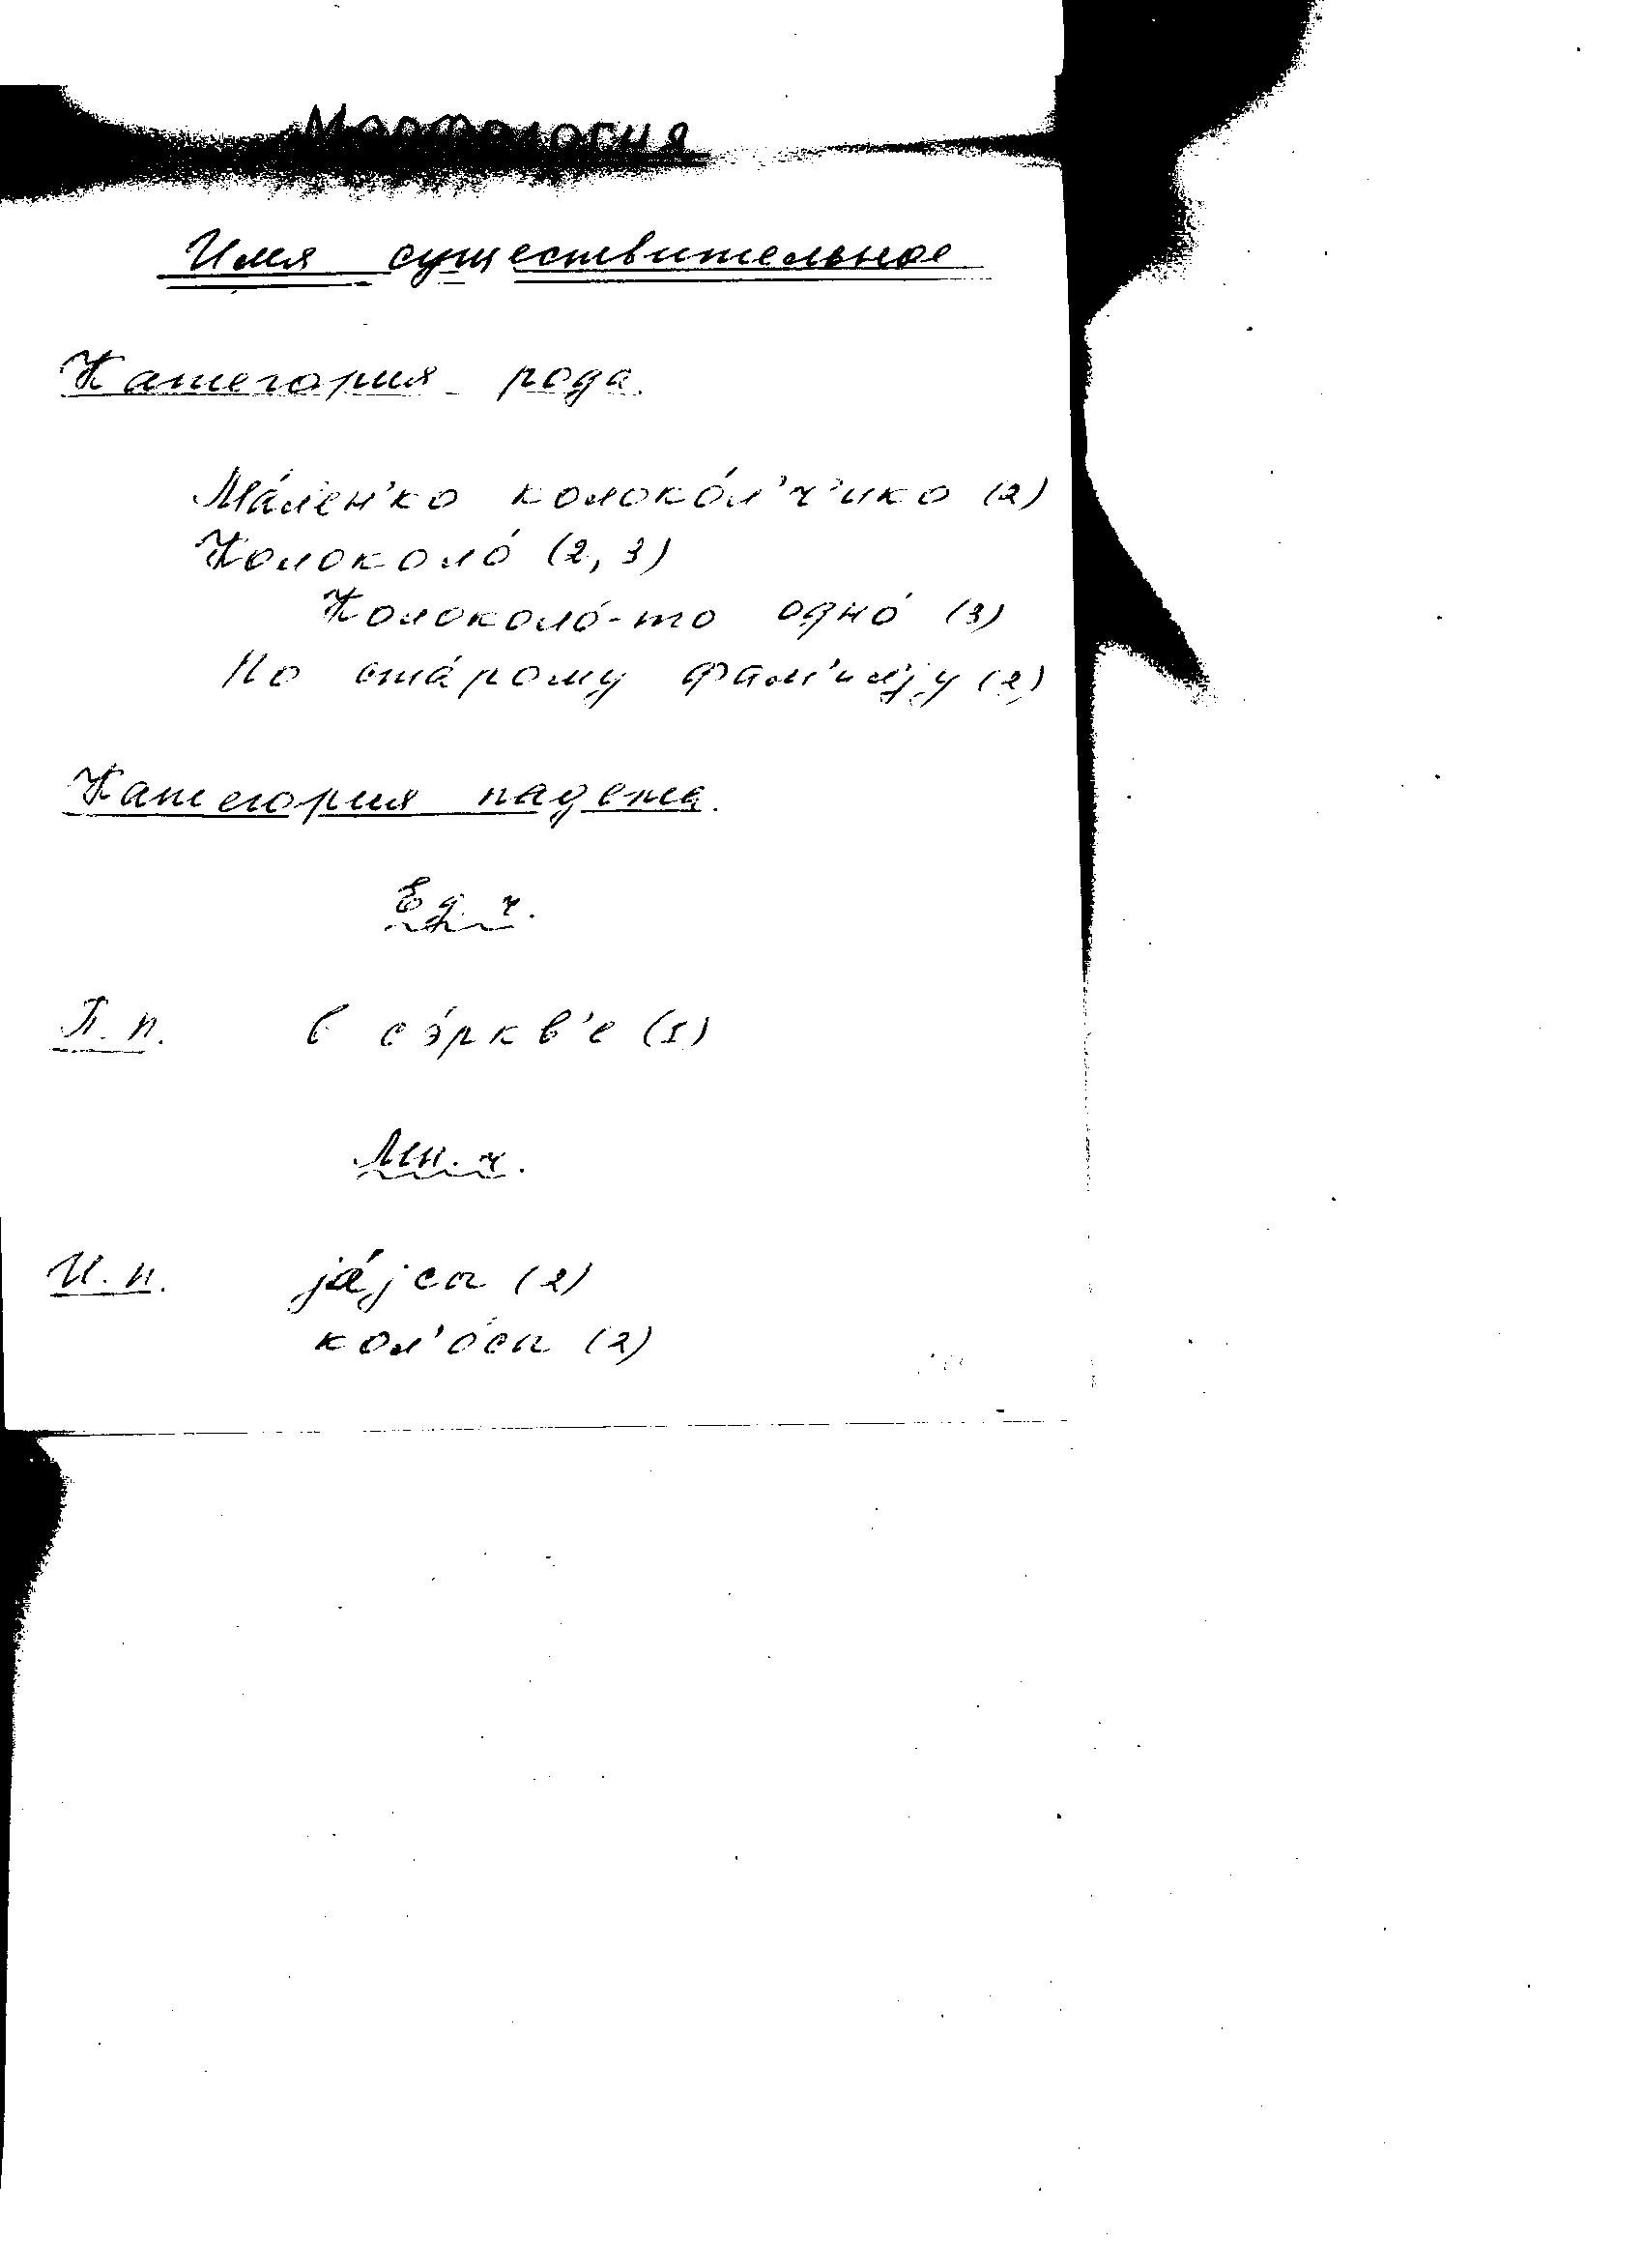 Морфология
Имя существительное
Категория рода.
Ма́лен'ко колоко́л'ч'ико (2)
Колоколо́ (2, 3)
Колоколо́-то одно́ (3)
По ста́рому фам'ил'jу (2)
Категория падежа.
Ед. ч.
П. п. в сэ́ркв'е (I)
Мн. ч.
И. п. jа́jса (2)
кол'о́са (2)